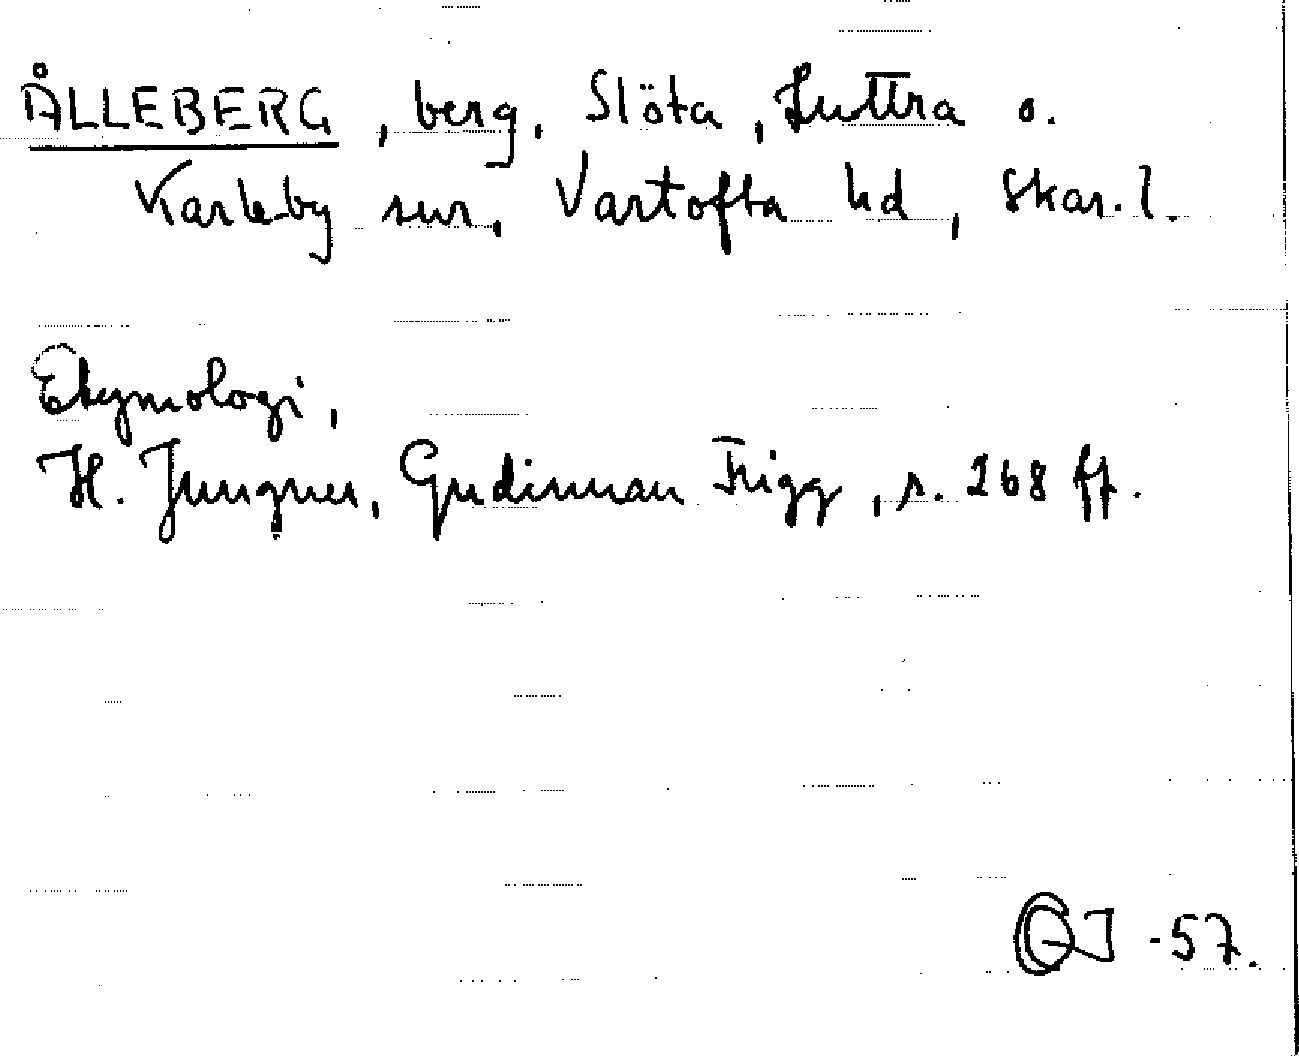 ÅLLEBERG, berg, Slöta, Luttra o.
Karleby snr, Vartofta hd, Skar.l.
Etymologi,
H. Jungner, Gudinnan Frigg, s. 268 ff.
-57.